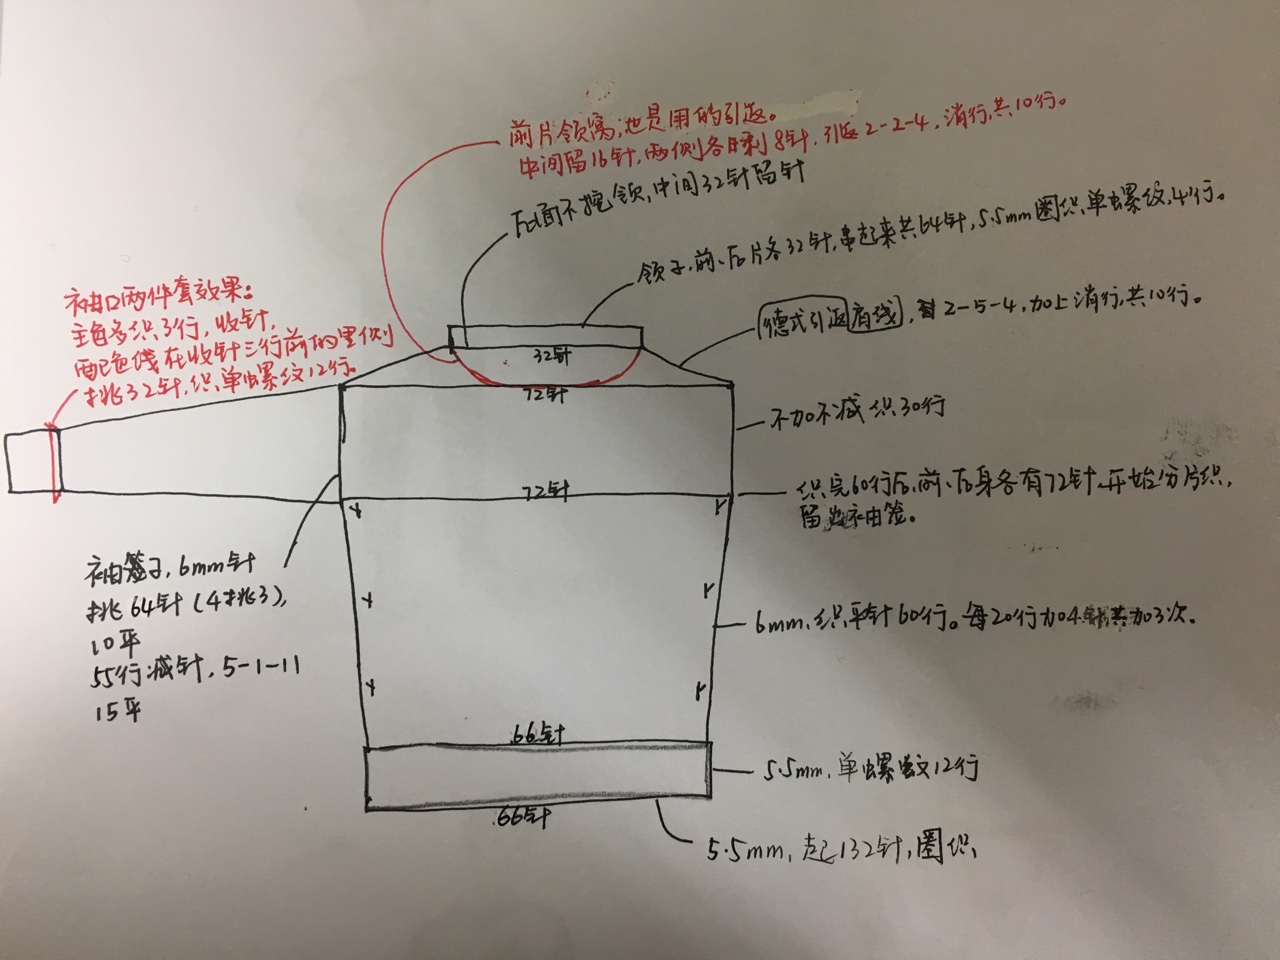 前片领窝,也是用的引返。
中间留16针,两侧各剩8针,引返2-2-4,消行,共10行。
后面不挖领,中间32针留针
领子,前、后片各32针,串起来共64针,5.5mm圈织单螺纹,4行。
德式引返肩线,2-5-4,加上消行,共10行。
袖口两件套效果:
主色多织3行,收针,
配色线在收针三行前的里侧
挑32针,织单螺纹12行。
32针
72针
不加不减织30行
72针
织完60行后,前、后身各有72针,开始分片织,
留出袖笼。
袖笼子,6mm针
挑64针(4挑3),
10平
55行减针,5-1-11
15平
6mm,织平针60行。每20行加4针,共加3次。
66针
5.5mm,单螺纹12行
66针
5.5mm,起132针,圈织,